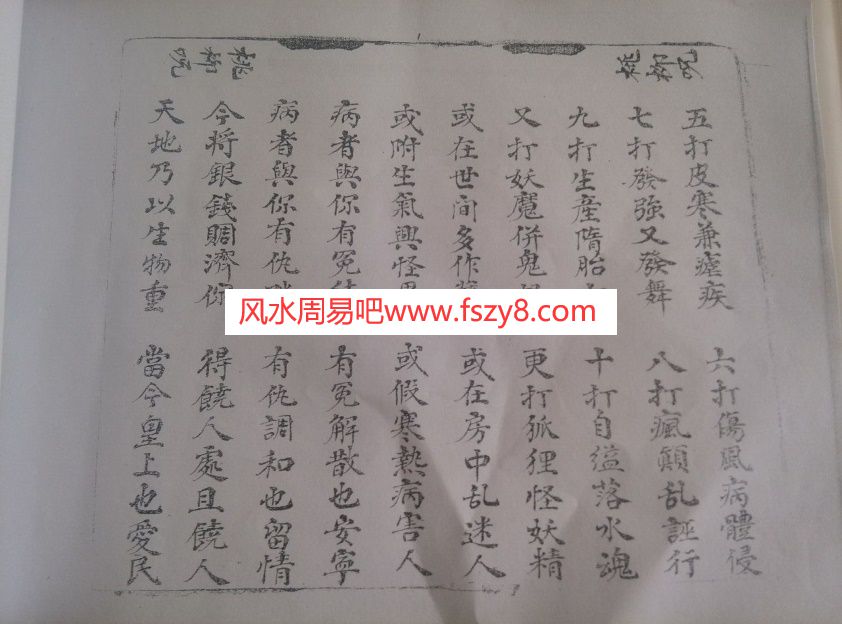 五打皮寒兼瘧疾 六打傷風病體侵
七打發強又發舞 八打瘋顛乱誑行
九打生產隋胎 十打自缢落水魂
又打妖魔併鬼 更打狐狸怪妖精
或在世間多作 或在房中乱迷人
或附生氣興怪 或假寒熱病害人
病者與你有冤 有冤解散也安寧
病者與你有仇 有仇調和也留情
今將銀錢賙濟你 得饒人處且饒人
天地乃以生物重 當今皇上也愛民
风水周易吧www.fszy8.com